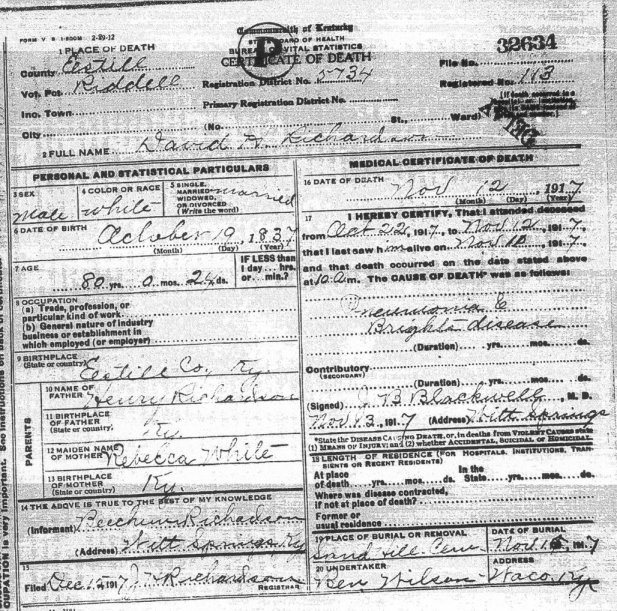 FORM V. S. 1-500M 2-29-12
Commonwealth of Kentucky
STATE BOARD OF HEALTH
BUREAU OF VITAL STATISTICS
CERTIFICATE OF DEATH
1 PLACE OF DEATH
County Estill
Vot. Pct. Riddell
Inc. Town
City
Registration District No. 5734
Primary Registration District No.
(No. St., Ward)
32634
File No.
Registered No. 113
2 FULL NAME David Richardson
PERSONAL AND STATISTICAL PARTICULARS
3 SEX male
4 COLOR OR RACE white
5 SINGLE, MARRIED, WIDOWED, OR DIVORCED (Write the word) married
6 DATE OF BIRTH October 19, 1837
(Month) (Day) (Year)
7 AGE 80 yrs. 0 mos. 24 ds.
IF LESS than 1 day... hrs. or... min.?
8 OCCUPATION
(a) Trade, profession, or particular kind of work.
(b) General nature of industry business or establishment in which employed (or employer)
9 BIRTHPLACE (State or country) Estill Co, Ky.
PARENTS
10 NAME OF FATHER Henry Richardson
11 BIRTHPLACE OF FATHER (State or country) Ky
12 MAIDEN NAME OF MOTHER Rebecca White
13 BIRTHPLACE OF MOTHER (State or country) Ky.
14 THE ABOVE IS TRUE TO THE BEST OF MY KNOWLEDGE
(Informant) Richardson
(Address) Witt Springs Ky
15
Filed Dec 15 1917 Richardson
REGISTRAR
MEDICAL CERTIFICATE OF DEATH
16 DATE OF DEATH Nov 12, 1917
(Month) (Day) (Year)
17 I HEREBY CERTIFY, That I attended deceased
from Oct 22, 1917, to Nov 12, 1917,
that I last saw him alive on Nov 10, 1917,
and that death occurred on the date stated above
at 10 a.m. The CAUSE OF DEATH* was as follows:
Pneumonia
Brights disease
(Duration) yrs. mos. ds.
Contributory
(SECONDARY)
(Duration) yrs. mos. ds.
(Signed) J B Blackwell, M. D.
Nov 13, 1917 (Address) Witt Springs
*State the DISEASE CAUSING DEATH, or, in deaths from VIOLENT CAUSES state
(1) MEANS OF INJURY; and (2) whether ACCIDENTAL, SUICIDAL OR HOMICIDAL
18 LENGTH OF RESIDENCE (FOR HOSPITALS, INSTITUTIONS, TRANSIENTS OR RECENT RESIDENTS)
At place of death yrs. mos. ds.
In the State yrs. mos. ds.
Where was disease contracted, if not at place of death?
Former or usual residence
19 PLACE OF BURIAL OR REMOVAL Sand Hill Cem
DATE OF BURIAL Nov 1917
20 UNDERTAKER Ben Wilson
ADDRESS Waco Ky.